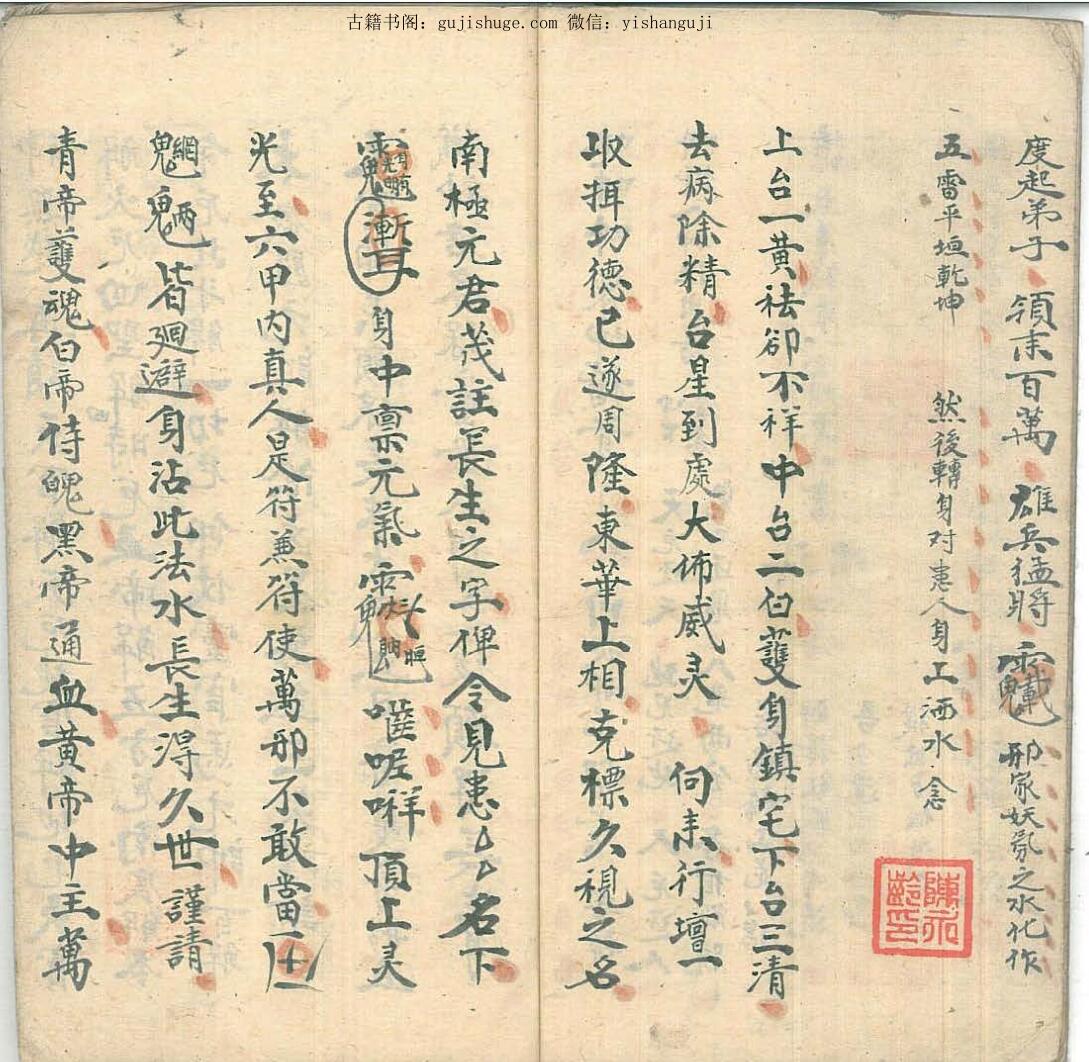 古籍书阁：gujishuge.com 微信：yishanguji
度起弟子 領末百萬 雄兵猛將 邪家妖氛之水化作
五雷平垣乾坤 然後轉身对患人身上洒水念
上台一黄祛卻不祥中台二白護身鎮宅下台三清
去病除精台星到處大佈威灵 向来行壇一
收揖功德已遂周隆東華上相克標久視之名
南極元君茂註長生之字俾令見患厶厶名下
漸耳身中禀元氣 頂上灵
光至六甲內真人是符兼符使萬邪不敢當
皆廻避身沾此法水長生得久世 謹請
青帝護魂白帝侍魄黑帝通血黄帝中主萬
陳 齡印